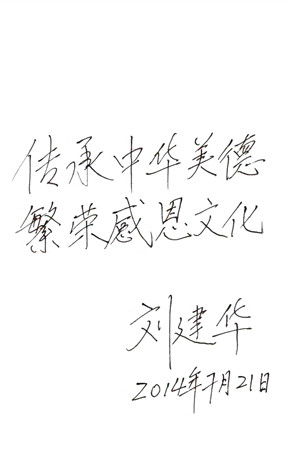 传承中华美德
繁荣感恩文化
刘建华
2014年7月21日